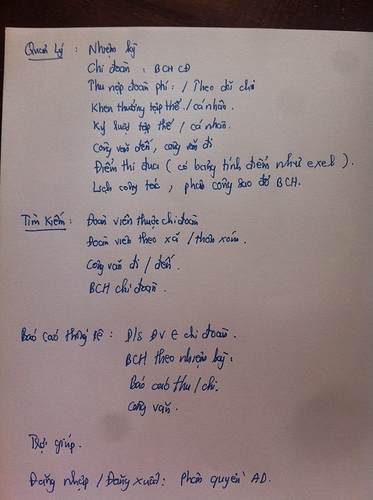 Quản Lý : Nhiệm kỳ
Chi đoàn : BCH CĐ
Thu nộp đoàn phí : / Theo dõi chi
Khen thưởng tập thể / cá nhân.
Kỷ luật tập thể / cá nhân.
Công văn đến, công văn đi
Điểm thi đua ( có bảng tính điểm như exel ).
Lịch công tác, phân công sao đỏ BCH.
Tìm kiếm : Đoàn viên thuộc chi đoàn
Đoàn viên theo xã / thôn xóm.
Công văn đi / đến.
BCH chi đoàn.
Báo cáo thống kê : D/s ĐV € chi đoàn.
BCH theo nhiệm kỳ :
báo cáo thu / chi.
công văn.
Trợ giúp.
Đăng nhập / Đăng xuất : Phân quyền AD.